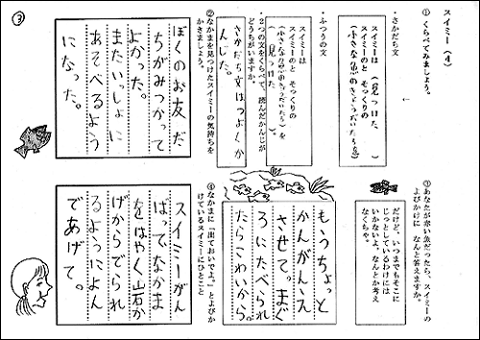 スイミー (4)
① くらべてみましょう。
・さかだち文
スイミーは (見つけた、)
スイミーのと そっくりの
(小さな魚のきょうだいたちを)
↓
・ふつうの文
スイミーは
スイミーのと そっくりの
(小さな魚のきょうだいたち)を
(見つけた。)
・2つの文をくらべて、読んだかんじが
どうちがいますか。
さかだち文はつよくか
んじた。
② なかまを見つけたスイミーの気持ちを
かきましょう。
ぼくのお友だ
ちがみつかって
よかった。
またいっしょに
あそべるよう
になった。
③
③ あなたが赤い魚だったら、スイミーの
よびかけに なんと答えますか。
だけど、いつまでもそこに
じっとしているわけには
いかないよ。なんとか考え
なくちゃ。
もうちょっと
かんがんえ
させて。まぐ
ろにたべられ
たらこわいから。
④ なかまに「出ておいでよ。」とよびか
けているスイミーにひとこと
スイミーがん
ばって、なかま
をはやく岩か
げからでられ
るようによん
であげて。